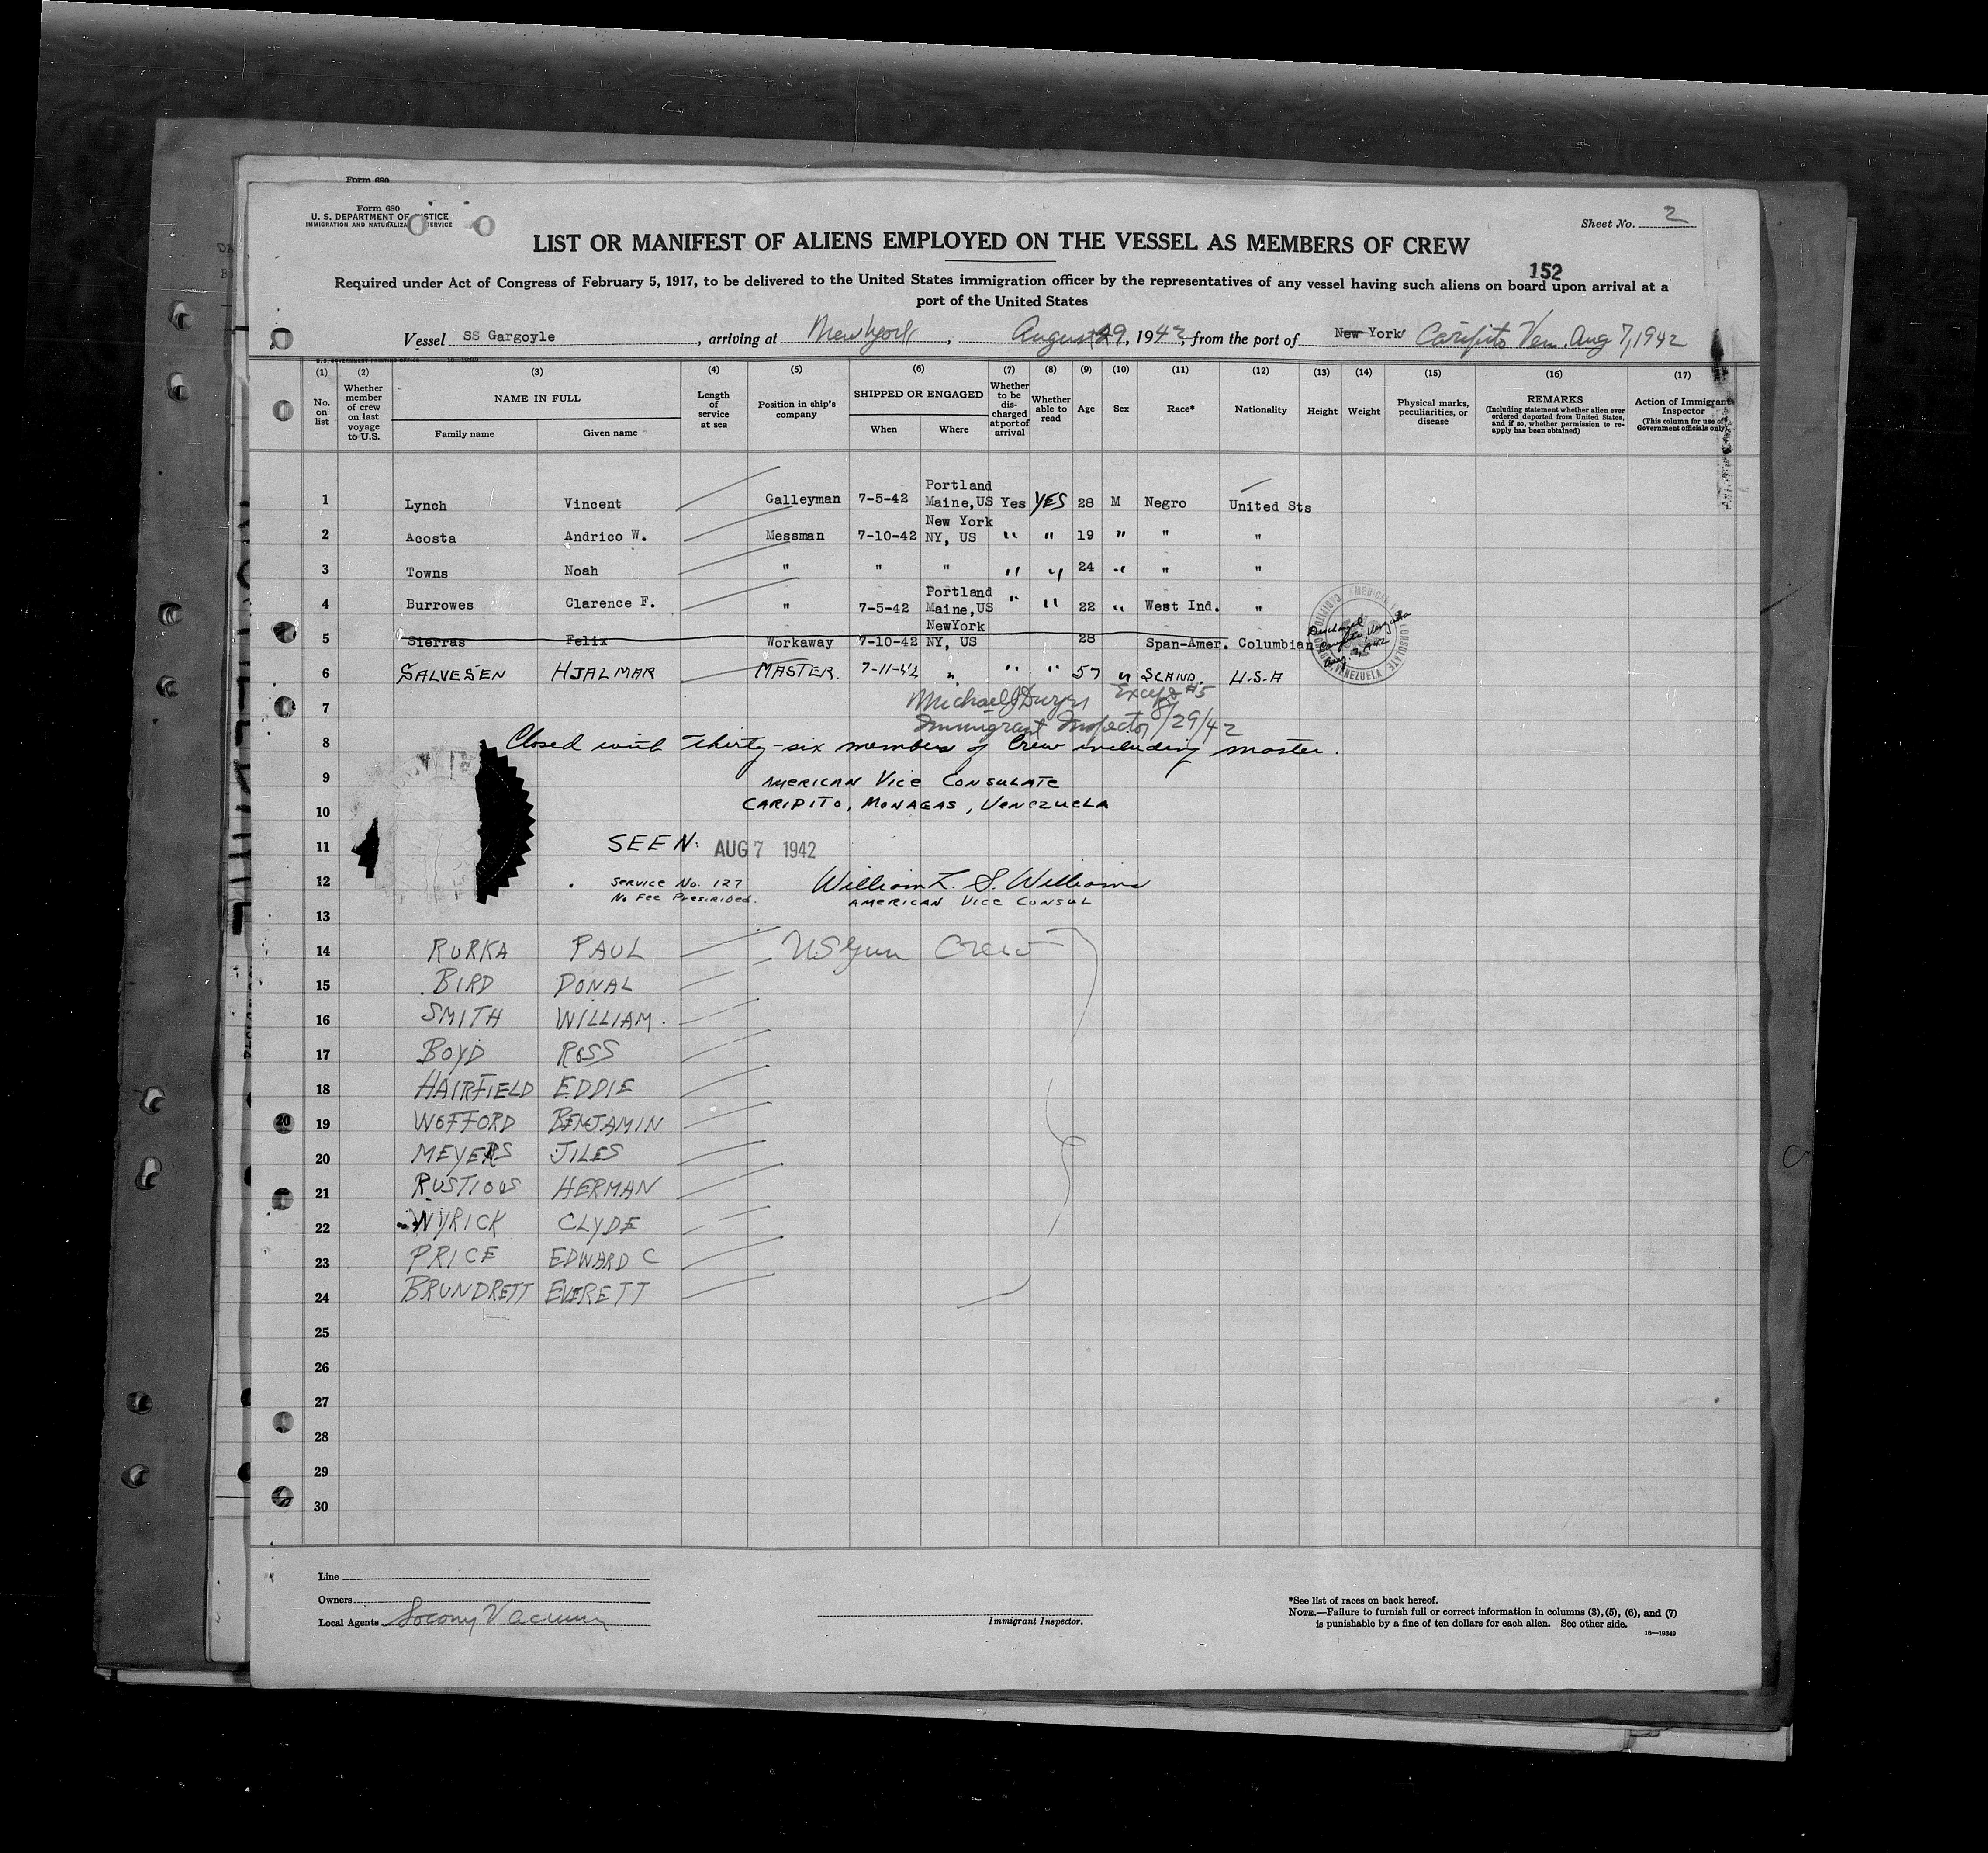 Form 680
Form 680
U. S. DEPARTMENT OF JUSTICE
IMMIGRATION AND NATURALIZATION SERVICE
Sheet No. 2
LIST OR MANIFEST OF ALIENS EMPLOYED ON THE VESSEL AS MEMBERS OF CREW
152
Required under Act of Congress of February 5, 1917, to be delivered to the United States immigration officer by the representatives of any vessel having such aliens on board upon arrival at a
port of the United States
Vessel SS Gargoyle, arriving at New York, August 29, 1942, from the port of New York Caripito Ven. Aug 7, 1942
(1) (2) (3) (4) (5) (6) (7) (8) (9) (10) (11) (12) (13) (14) (15) (16) (17)
No. on list
Whether member of crew on last voyage to U.S.
NAME IN FULL
Family name Given name
Length of service at sea
Position in ship's company
SHIPPED OR ENGAGED
When Where
Whether to be discharged at port of arrival
Whether able to read
Age Sex Race* Nationality Height Weight
Physical marks, peculiarities, or disease
REMARKS
(Including statement whether alien ever ordered deported from United States, and if so, whether permission to reapply has been obtained)
Action of Immigrant Inspector
(This column for use of Government officials only)
1 Lynch Vincent Galleyman 7-5-42 Portland Maine,US Yes YES 28 M Negro United Sts
2 Acosta Andrico W. Messman 7-10-42 New York NY, US " " 19 " " "
3 Towns Noah " " " " " 24 " " "
4 Burrowes Clarence F. " 7-5-42 Portland Maine,US " " 22 " West Ind. "
5 Sierras Felix Workaway 7-10-42 NewYork NY, US 28 Span-Amer. Columbian
6 SALVESEN HJALMAR MASTER. 7-11-42 " " " 57 " SCAND. U.S.A
7 Michael J Dwyer Except #5
Immigrant Inspector 8/29/42
8 Closed with thirty-six members of Crew including master.
9 AMERICAN VICE CONSULATE
10 CARIPITO, MONAGAS, VENEZUELA
11 SEEN: AUG 7 1942
12 SERVICE No. 127 William L. S. Williams
No Fee Prescribed. AMERICAN VICE CONSUL
13
14 RURKA PAUL US Gun Crew
15 BIRD DONAL
16 SMITH WILLIAM.
17 BOYD ROSS
18 HAIRFIELD EDDIE
19 WOFFORD BENJAMIN
20 MEYERS JILES
21 RUSTIOUS HERMAN
22 WYRICK CLYDE
23 PRICE EDWARD C
24 BRUNDRETT EVERETT
25
26
27
28
29
30
20
Line
Owners
Local Agents Socony Vacuum
Immigrant Inspector.
*See list of races on back hereof.
NOTE.—Failure to furnish full or correct information in columns (3), (5), (6), and (7)
is punishable by a fine of ten dollars for each alien. See other side.
16—19349